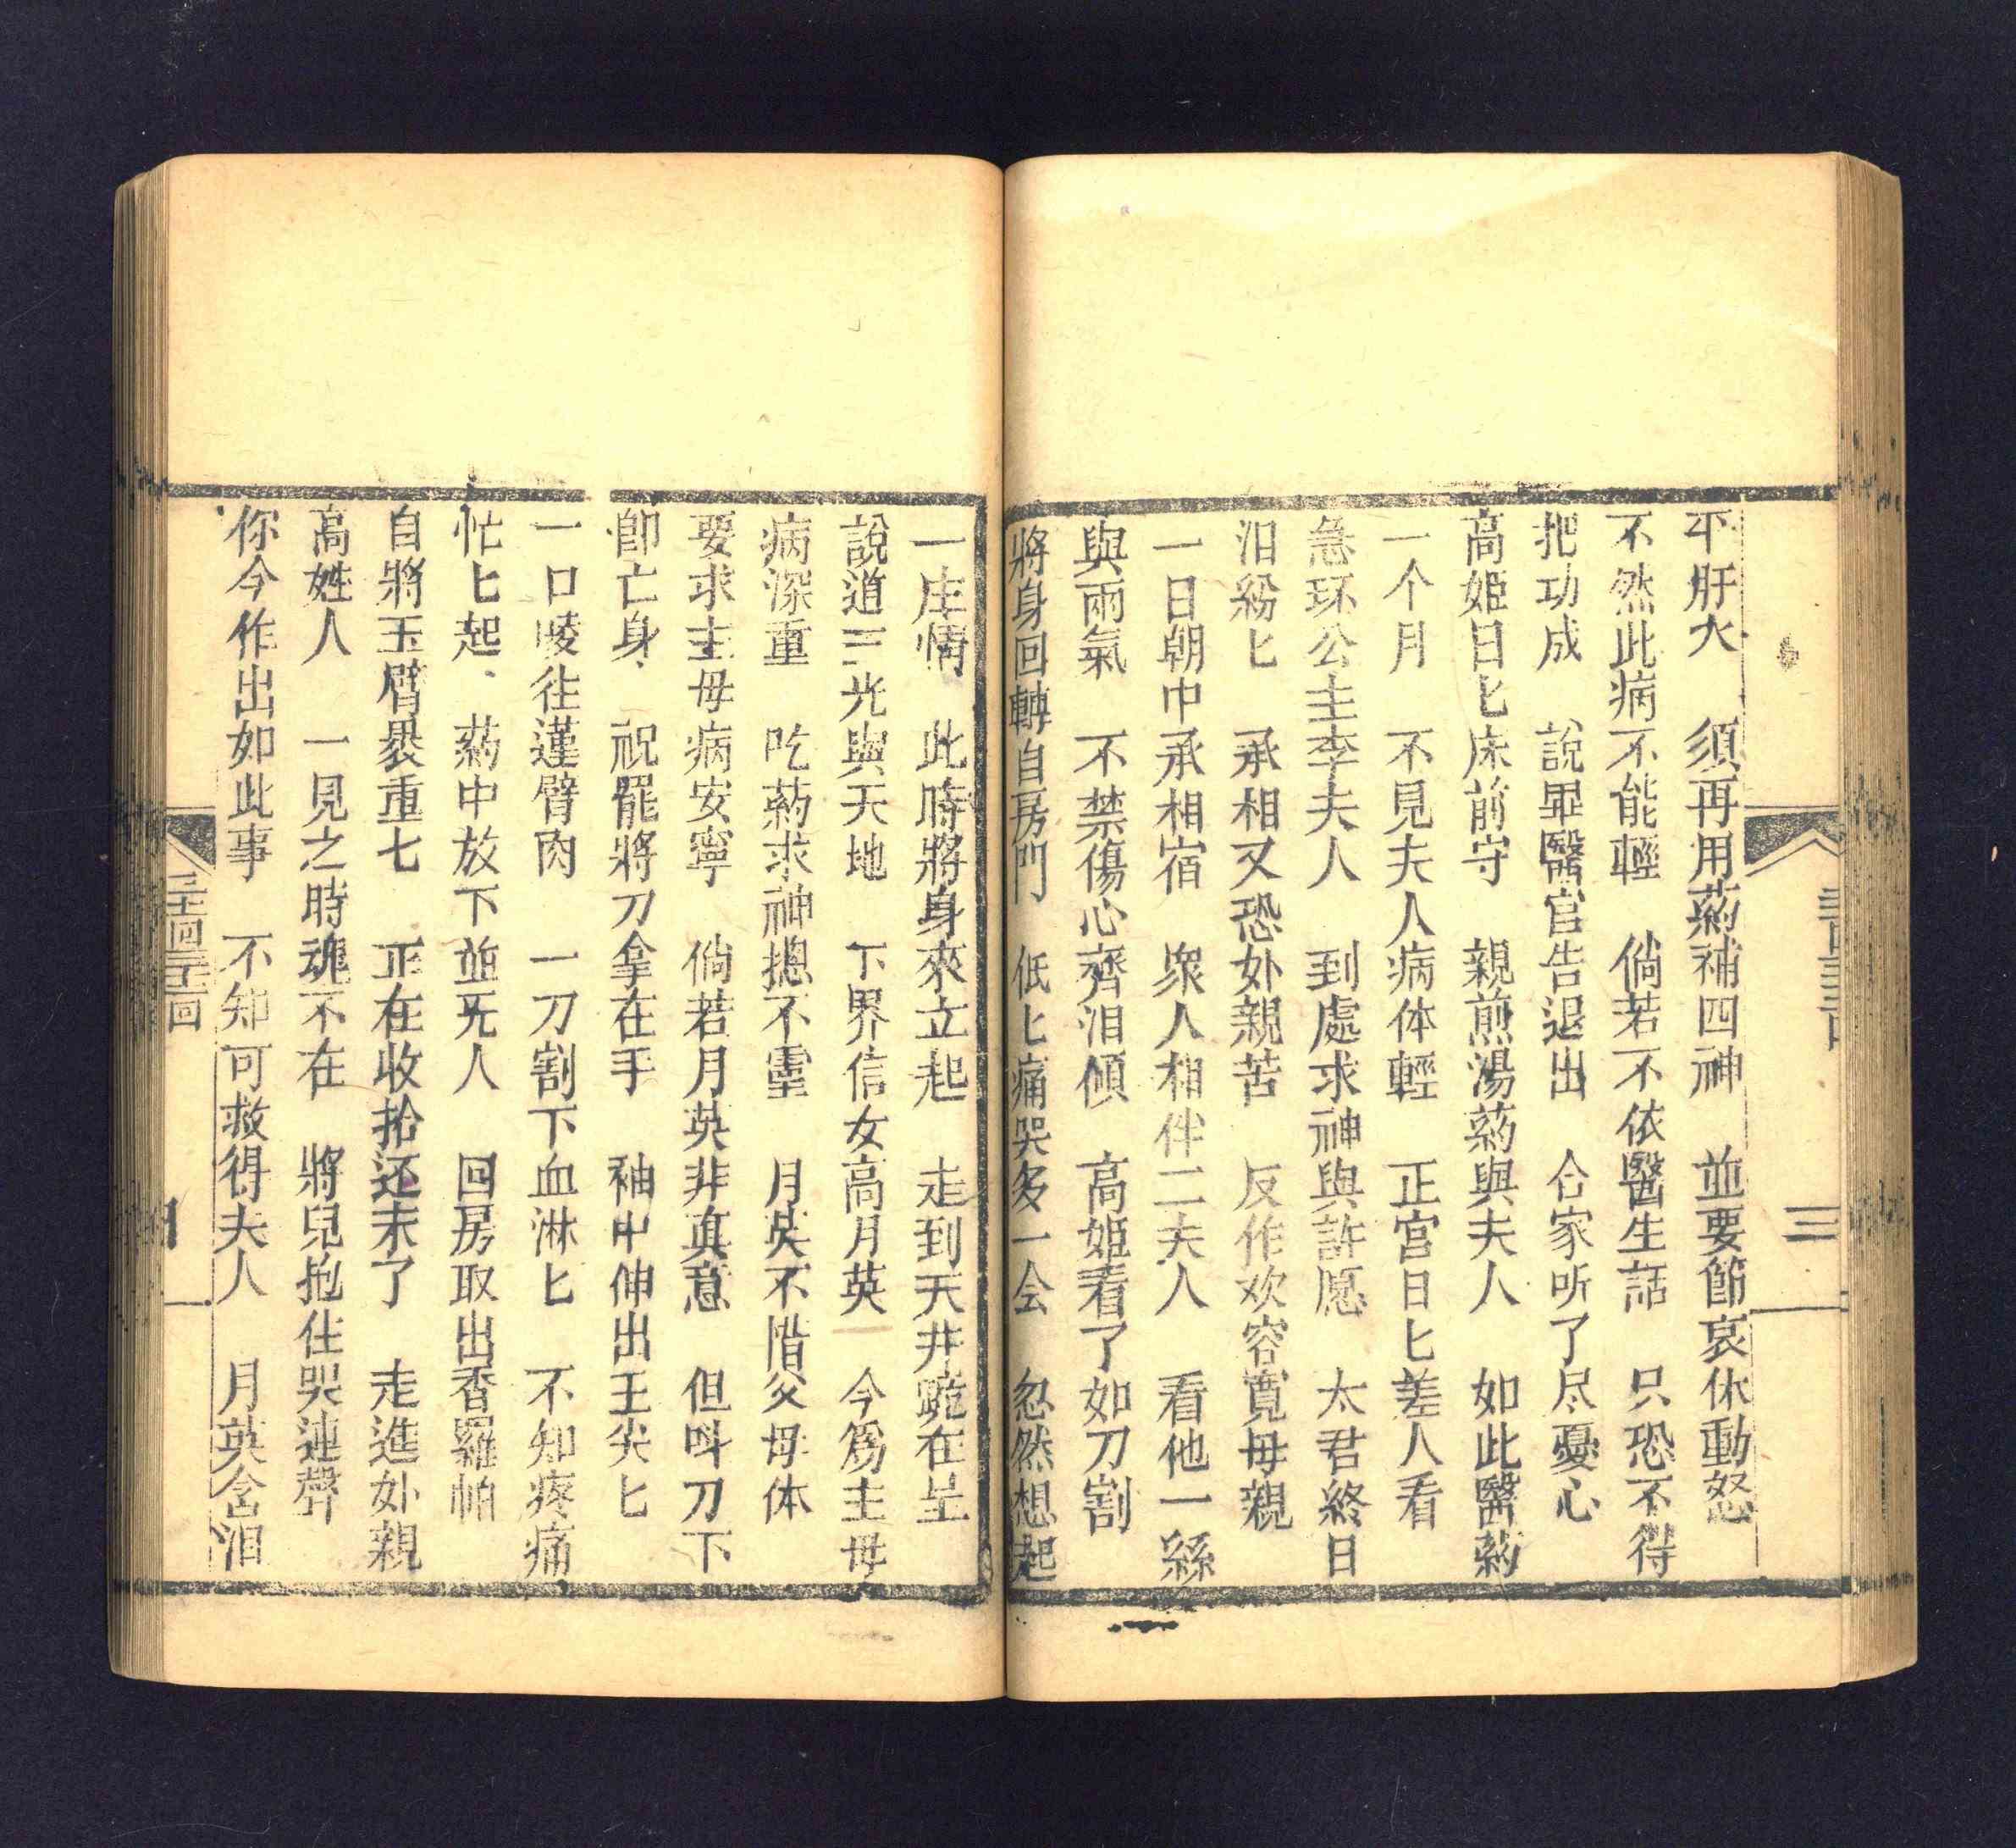 平肝火　須再用葯補四神　並要節哀休動怒
不然此病不能輕　倘若不依醫生話　只恐不得
把功成　說畢醫官告退出　合家听了尽憂心
高姬日匕床前守　親煎湯葯與夫人　如此醫葯
一个月　不見夫人病体輕　正宮日匕差人看
急环公主李夫人　到處求神與許愿　太君終日
泪紛匕　承相又恐妳親苦　反作欢容寬母親
一日朝中承相宿　衆人相伴二夫人　看他一絲
與兩氣　不禁傷心齊泪傾　高姬看了如刀割
將身回轉自房門　低匕痛哭多一会　忽然想起
一庄情　此時將身來立起　走到天井跪在尘
說道三光與天地　下界信女高月英　今爲主母
病深重　吃葯求神揔不靈　月英不惜父母体
要求主母病安寧　倘若月英非真意　但叫刀下
卽亡身　祝罷將刀拿在手　袖中伸出玉尖匕
一口咬住蓮臂肉　一刀割下血淋匕　不知疼痛
忙匕起　葯中放下並旡人　回房取出香羅帕
自將玉臂裹重七　正在收拾还未了　走進妳親
高姓人　一見之時魂不在　將兒抱住哭連聲
你今作出如此事　不知可救得夫人　月英含泪
三